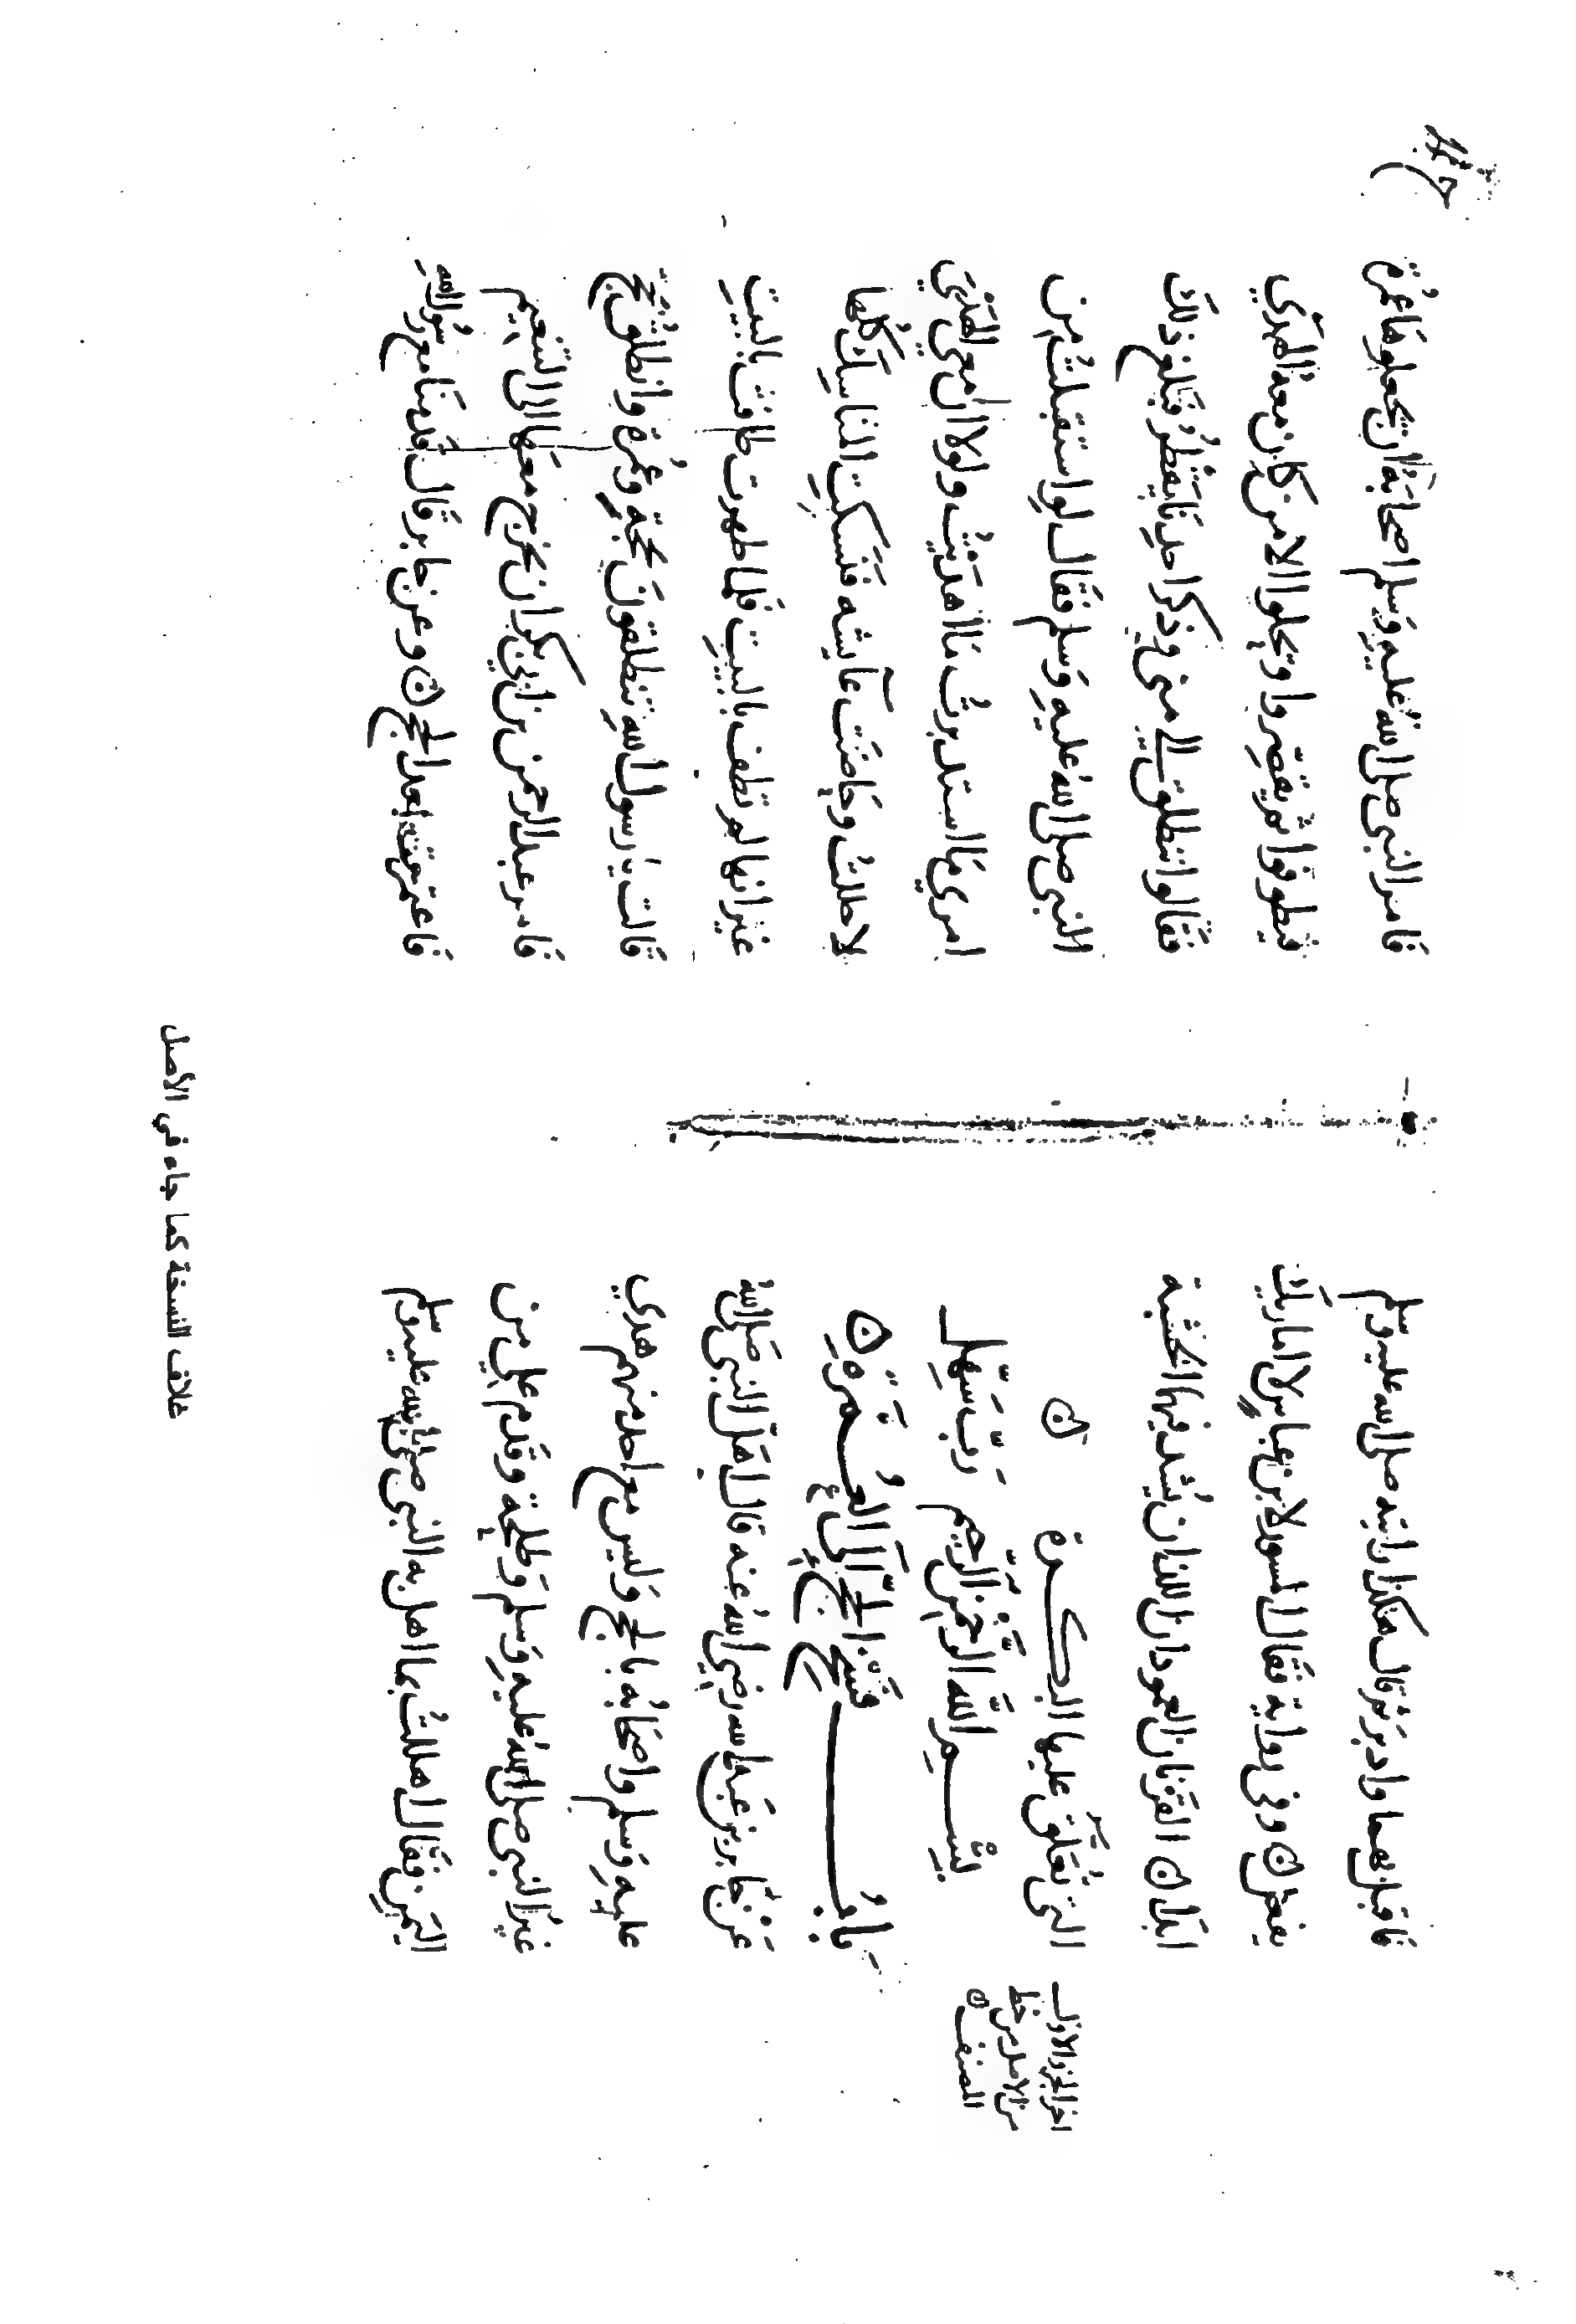 فاقبل بهما وادبر ثم قال هكذا رايته صلى الله عليه وسلم
يفعل ن وفي رواية فقال المسور لابن عباس لا اماريك
ابدا ن القرنان العمودان اللذان تُشد فيهما الخشبة
التي تُعَلَّق عليها البكرة ن
اخر الجزء الاول
من الاصل من خط
المصنف ن
بِسْمِ الله الرحمن الرحيم رَبِّ سَهِّل
بابُ فَسْخ الحجّ اِلى العُمرَةِ ن
عَنْ جابر بن عَبد الله رضي اللهُ عنه قال اَهَلَّ النبي صَلى اللهُ
عليهِ وَسلم واصحَابُه بالحج وَليس مع احد منهم هدي
غيرَ النبي صلى اللهُ عليهِ وَسلم وَطلحة وقَدم علي من
اليَمن فقَال اهللتُ بما اهل به النبي صلى الله عليه وسلم
فَامر النبي صلى اللهُ عليهِ وَسلم اصحابَهُ ان يجعلوهَا عُمرة
فيطوفوا ثم يقصِّروا ويحلوا الا من كان معهُ الهَدْي
فقَالوا ننطلق الى منى وذكر احدنَا يَقْطُرُ فبَلغ ذلكَ
النبي صلى اللهُ عليهِ وَسلم فقَال لو استقبلتُ من
امري مَا استدبرتُ مَا اهدَيْتُ ولولا ان معي الهَدْيَ
لاحللتُ وحَاضَت عَائشه فنَسَكتِ المناسِكَ كُلَّها
غيرَ انها لم تطف بالبيتِ فلما طهرت طافَت بالبيتِ
قالت يا رسول اللهِ تنطلقونَ بحجةٍ وعُمرة وانطلقُ بحَجٍّ
فامر عبد الرحمن بن ابي بكر ان يخرج معَها الى التنعيم
فاعتمرت بعد الحج ن وعن جابر قال قَدمنَا مع رسُول الله
خلاف النسخة كما جاء في الأصل